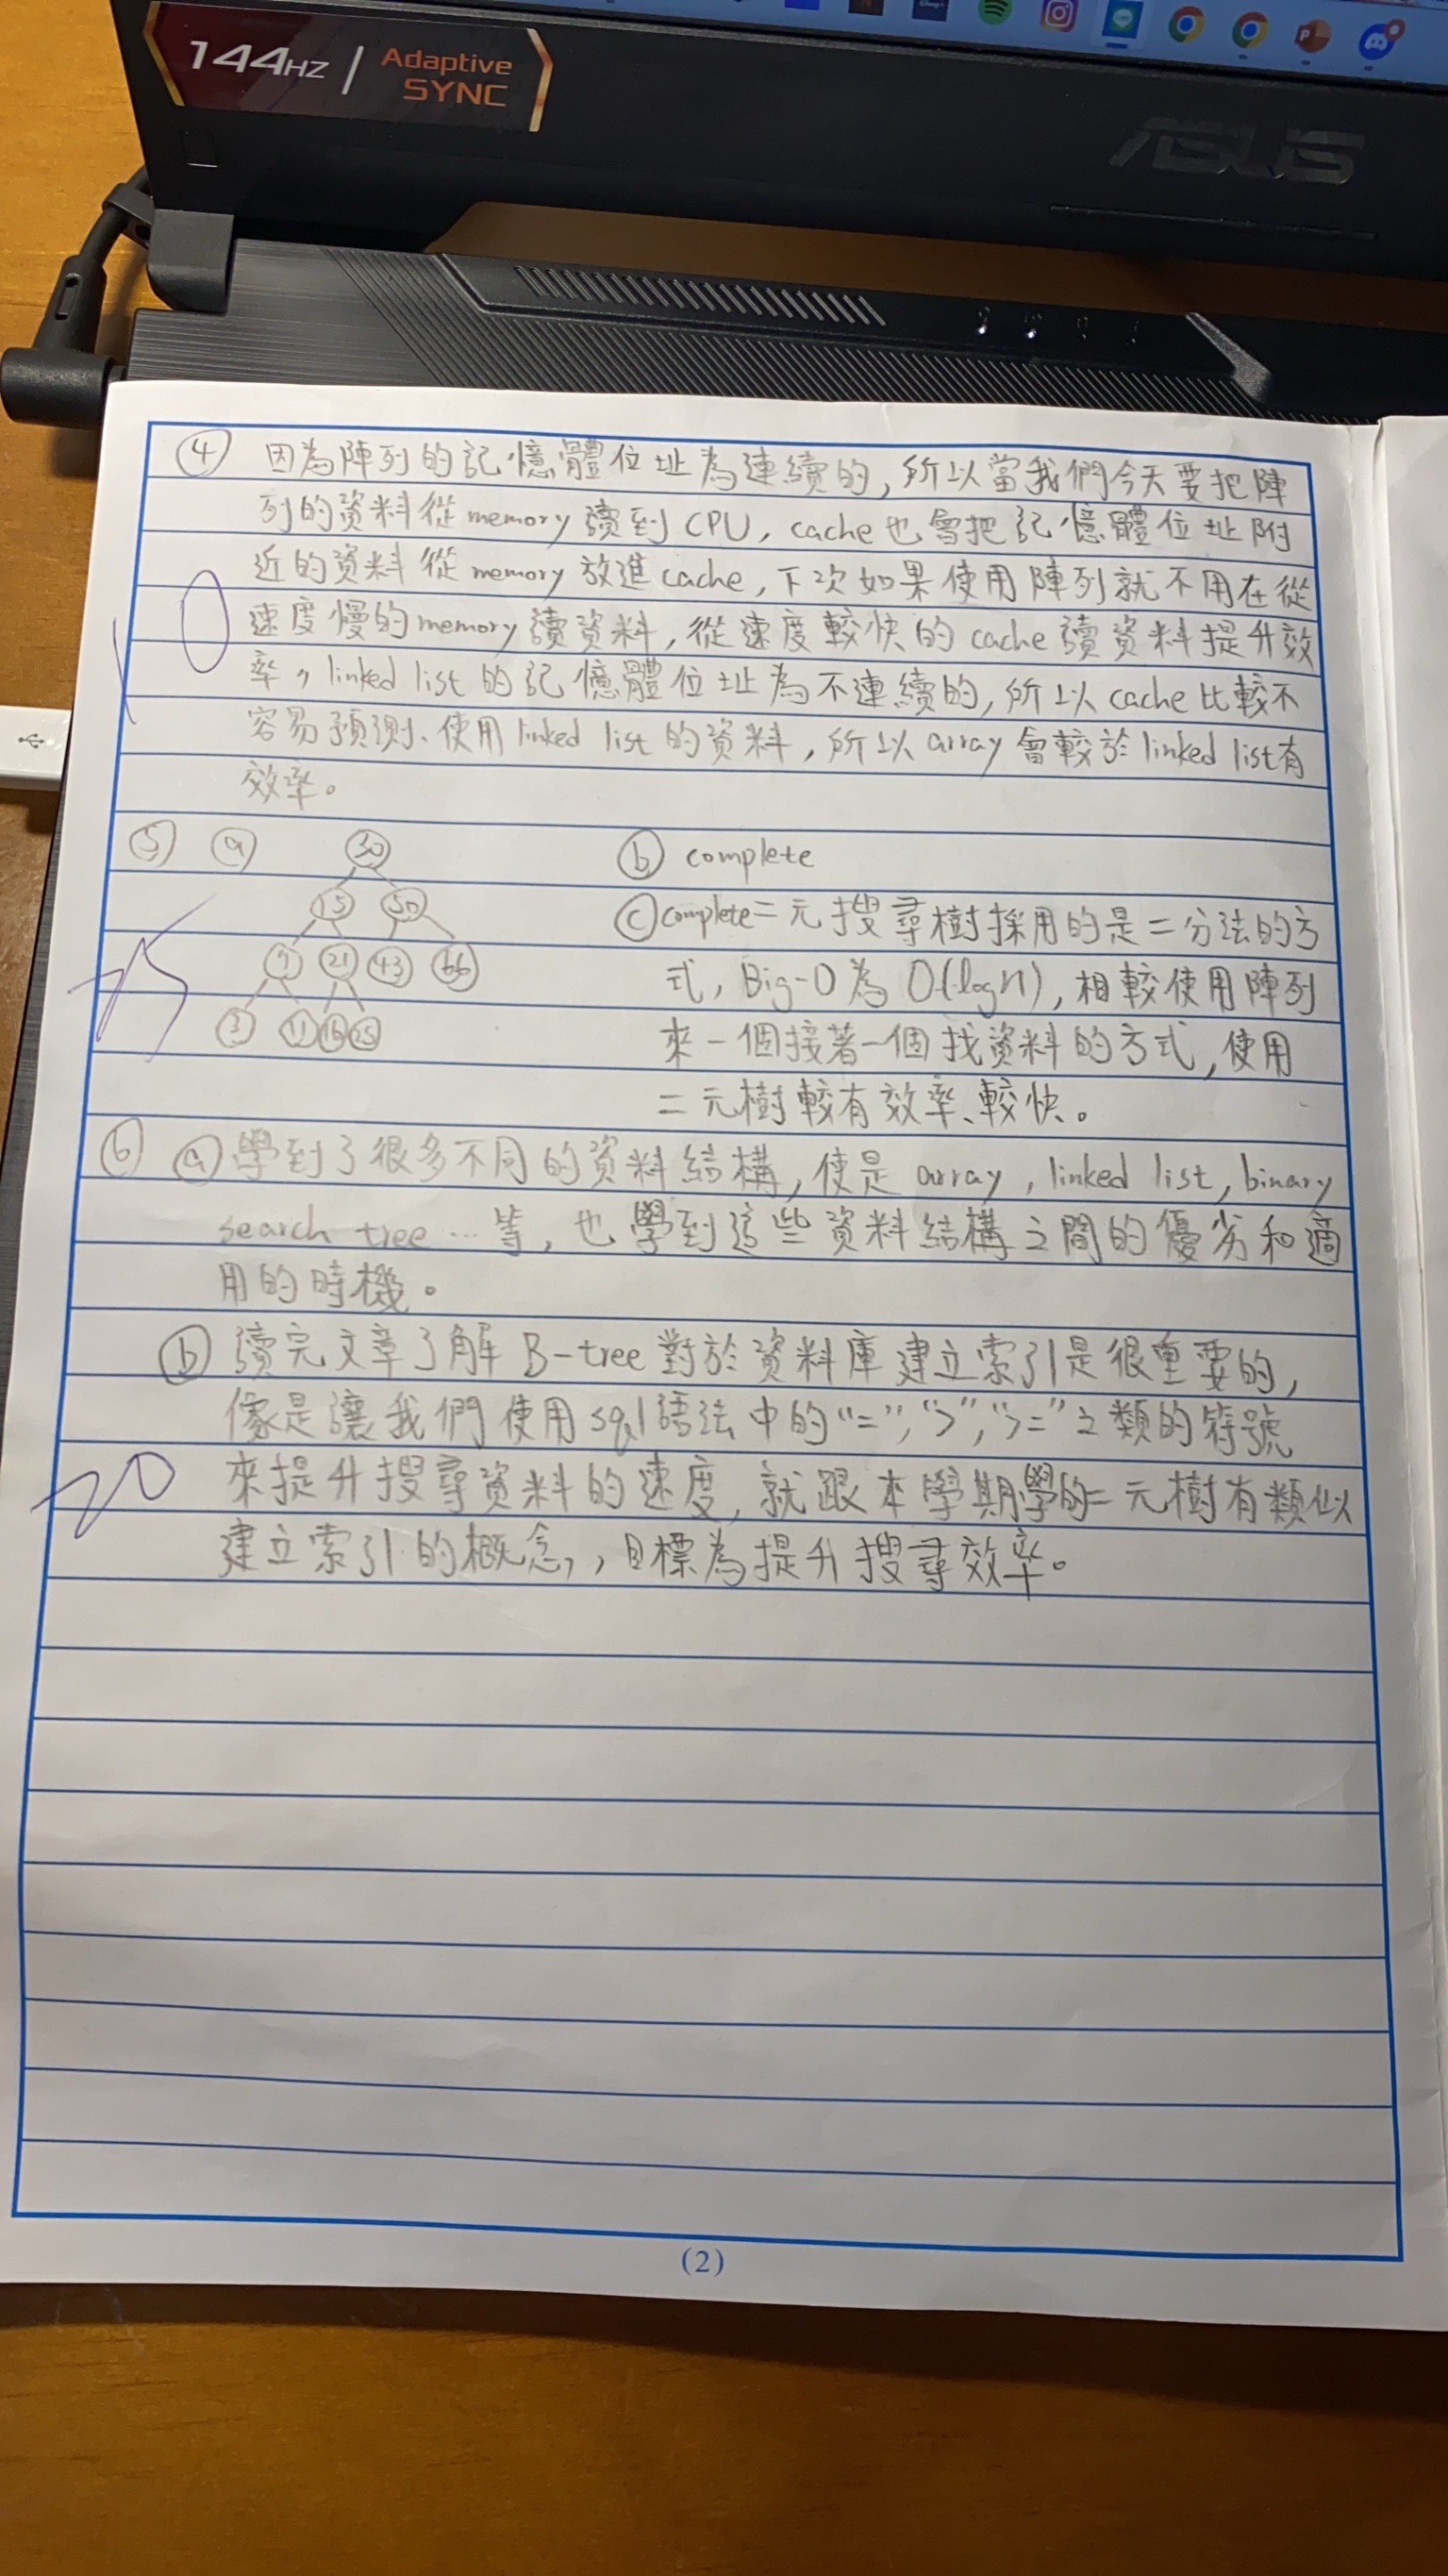 144HZ | Adaptive SYNC
ASUS
④ 因為陣列的記憶體位址為連續的,所以當我們今天要把陣
列的資料從memory讀到CPU,cache也會把記憶體位址附
近的資料從memory放進cache,下次如果使用陣列就不用在從
速度慢的memory讀資料,從速度較快的cache讀資料提升效
率,linked list的記憶體位址為不連續的,所以cache比較不
容易預測、使用linked list的資料,所以array會較於linked list有
效率。
10
⑤ ⓐ 30
15 50
9 21 43 66
3 11 18 25
25
ⓑ complete
ⓒ complete二元搜尋樹採用的是二分法的方
式,Big-O為O(logn),相較使用陣列
來一個接著一個找資料的方式,使用
二元樹較有效率、較快。
⑥ ⓐ 學到了很多不同的資料結構,使是array,linked list,binary
search tree…等,也學到這些資料結構之間的優劣和適
用的時機。
ⓑ 讀完文章了解B-tree對於資料庫建立索引是很重要的,
像是讓我們使用sql語法中的“=”,“>”,“>=”之類的符號
來提升搜尋資料的速度,就跟本學期學的二元樹有類似
建立索引的概念,,目標為提升搜尋效率。
20
(2)